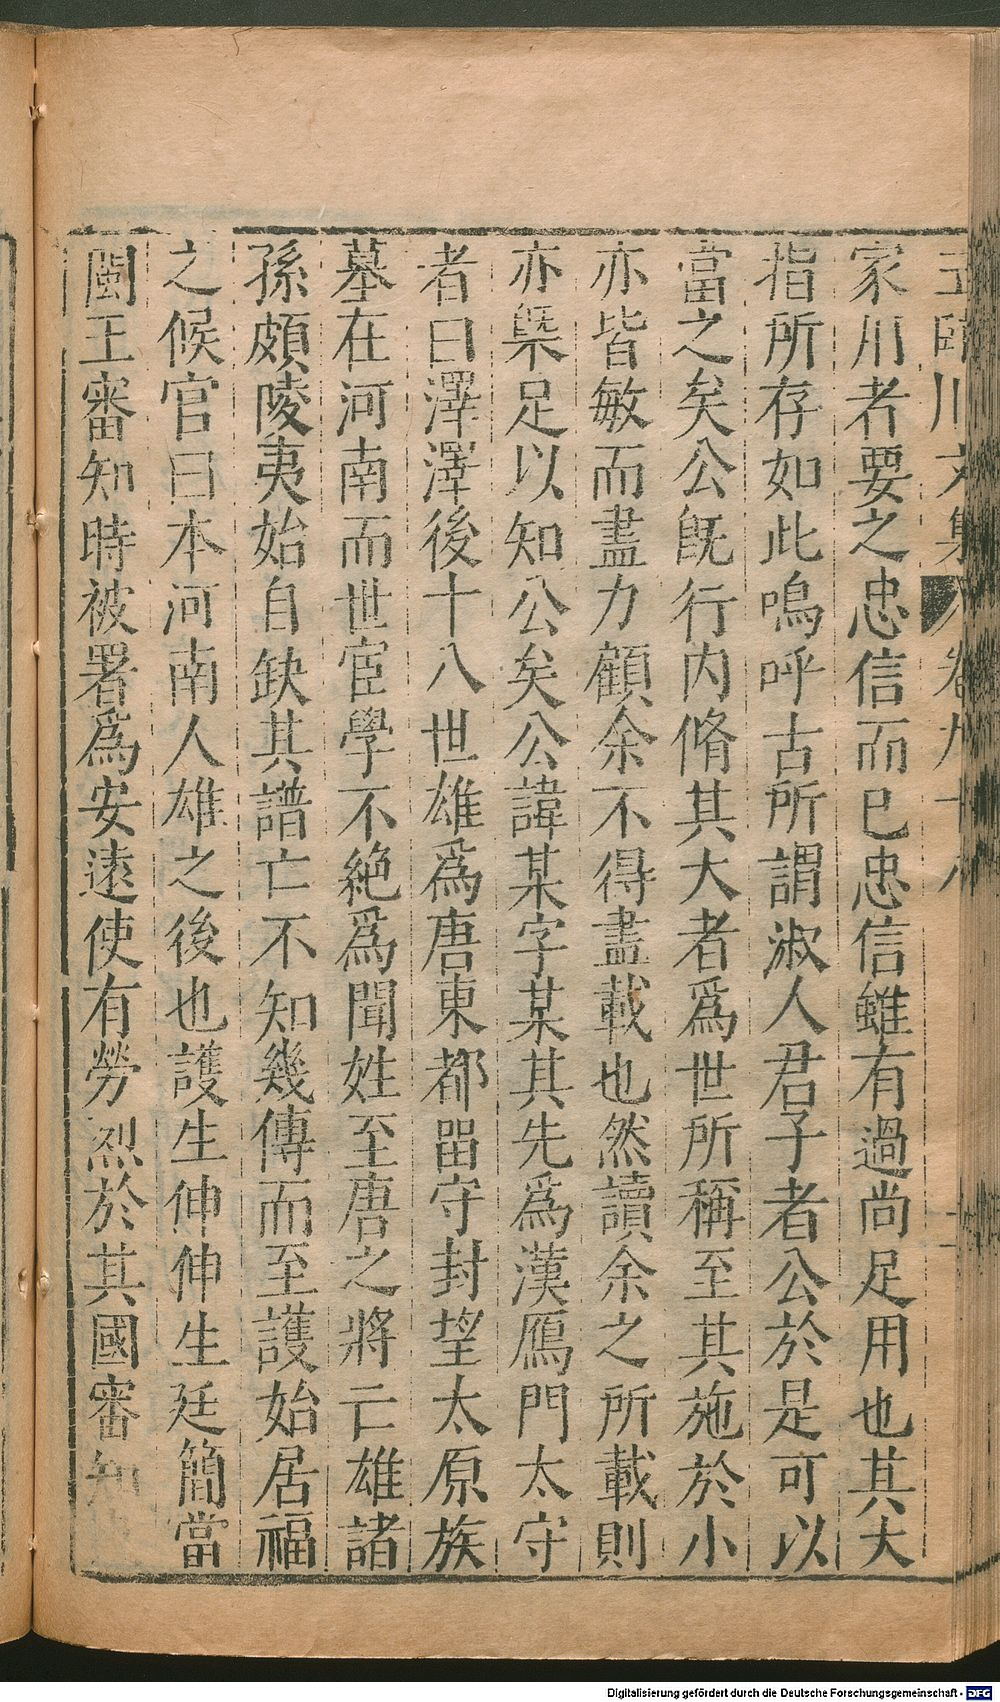 王臨川文集 卷九十八
家川者要之忠信而已忠信雖有過尚足用也其大
指所存如此嗚呼古所謂淑人君子者公於是可以
當之矣公旣行内脩其大者爲世所稱至其施於小
亦皆敏而盡力顧余不得盡載也然讀余之所載則
亦槩足以知公矣公諱某字某其先爲漢鴈門太守
者曰澤澤後十八世雄爲唐東都畱守封望太原族
墓在河南而世宦學不絶爲聞姓至唐之將亡雄諸
孫頗陵夷始自缺其譜亡不知幾傳而至護始居福
之候官曰本河南人雄之後也護生伸伸生廷簡當
閩王審知時被署爲安遠使有勞烈於其國審知
Digitalisierung gefördert durch die Deutsche Forschungsgemeinschaft - DFG